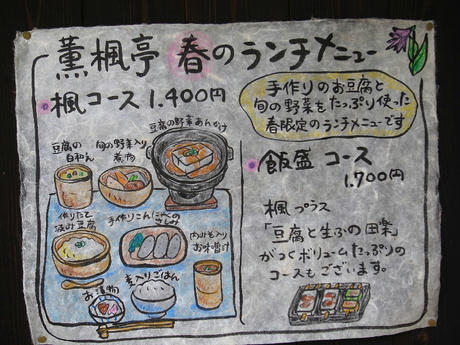 薫楓亭 春のランチメニュー
楓コース 1.400円
豆腐の野菜あんかけ
豆腐の
白和え
旬の野菜入り
煮物
作りたて
汲み豆腐
手作りこんにゃくの
さしみ
お味噌汁
麦入りごはん
お漬物
手作りのお豆腐と
旬の野菜をたっぷり使った
春限定のランチメニューです
飯盛 コース
1.700円
楓 プラス
「豆腐と生ふの田楽」
がつくボリュームたっぷりの
コースもございます。